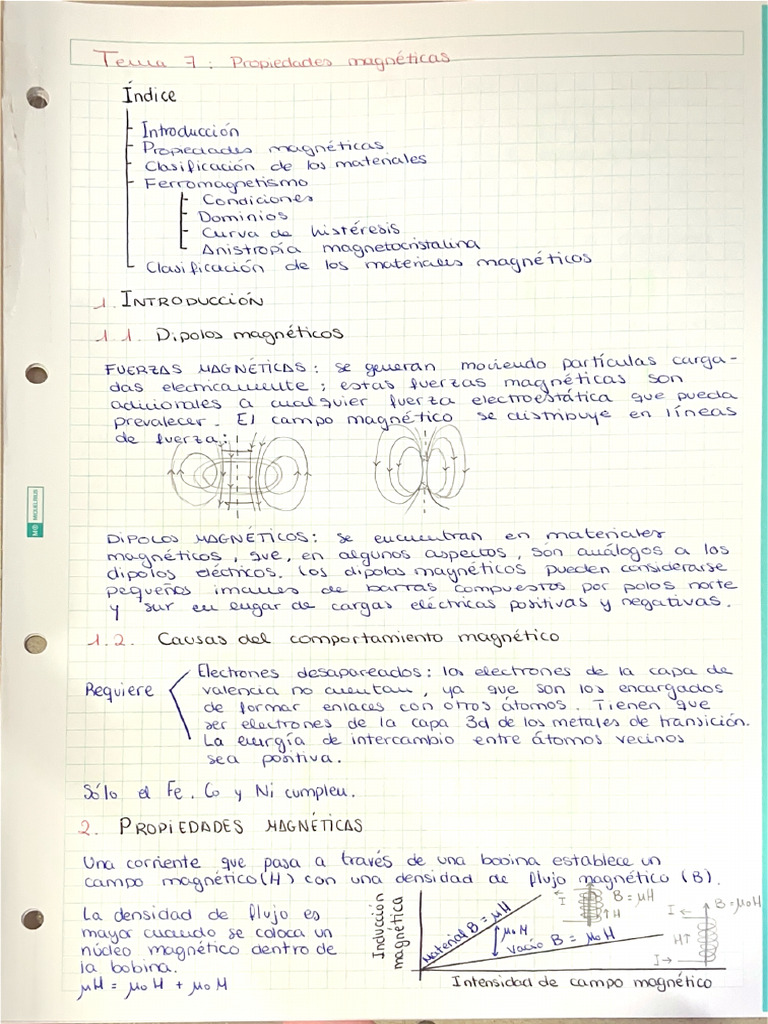 Tema 7: Propiedades magnéticas
Índice
Introducción
Propiedades magnéticas
Clasificación de los materiales
Ferromagnetismo
Condiciones
Dominios
Curva de histéresis
Anistropía magnetocristalina
Clasificación de los materiales magnéticos
1. INTRODUCCIÓN
1.1. Dipolos magnéticos
FUERZAS MAGNÉTICAS: se generan moviendo partículas carga-
das electricamente; estas fuerzas magnéticas son
adicionales a cualquier fuerza electroestática que pueda
prevalecer. El campo magnético se distribuye en líneas
de fuerza:
DIPOLOS MAGNÉTICOS: se encuentran en materiales
magnéticos, que, en algunos aspectos, son análogos a los
dipolos eléctricos. Los dipolos magnéticos pueden considerarse
pequeños imanes de barras compuestos por polos norte
y sur en lugar de cargas eléctricas positivas y negativas.
1.2. Causas del comportamiento magnético
Requiere
Electrones desapareados: los electrones de la capa de
valencia no cuentan, ya que son los encargados
de formar enlaces con otros átomos. Tienen que
ser electrones de la capa 3d de los metales de transición.
La energía de intercambio entre átomos vecinos
sea positiva.
Sólo el Fe, Co y Ni cumplen.
2. PROPIEDADES MAGNÉTICAS
Una corriente que pasa a través de una bobina establece un
campo magnético (H) con una densidad de flujo magnético (B).
La densidad de flujo es
mayor cuando se coloca un
núcleo magnético dentro de
la bobina.
μH = μ₀H + μ₀M
Inducción
magnética
Material B = μH
μ₀M
Vacío B = μ₀H
I
B = μH
↑H
I ←
B = μ₀H
H↑
I →
Intensidad de campo magnético
MIQUELRIUS